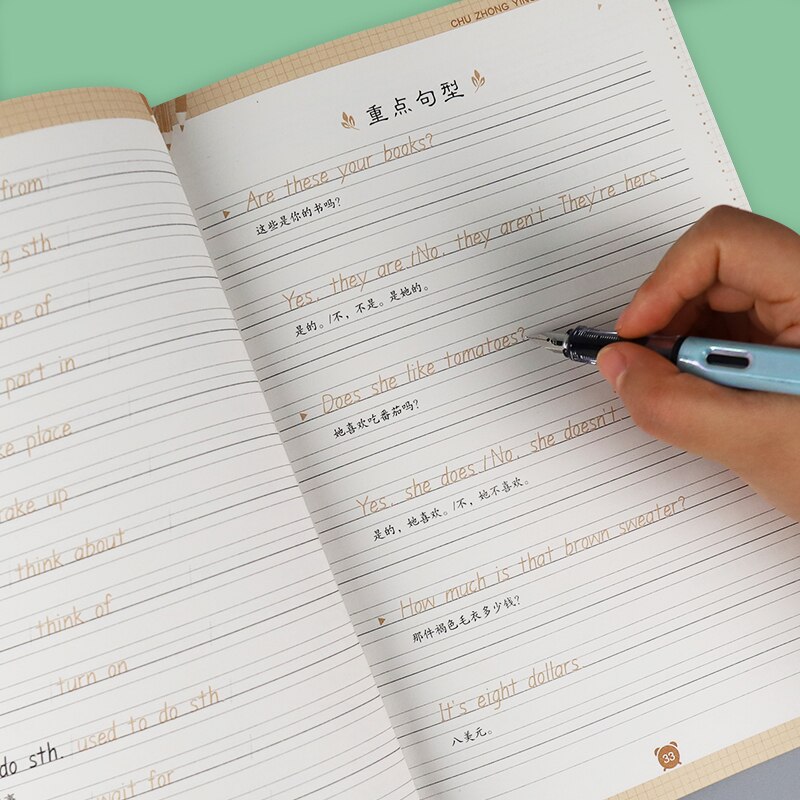 from
sth.
of
part in
place
up
think about
think of
turn on
do sth. used to do sth.
wait for
CHU ZHONG YING
重点句型
Are these your books?
这些是你的书吗?
Yes, they are./No, they aren't. They're hers.
是的。/不,不是。是她的。
Does she like tomatoes?
她喜欢吃番茄吗?
Yes, she does./No, she doesn't.
是的,她喜欢。/不,她不喜欢。
How much is that brown sweater?
那件褐色毛衣多少钱?
It's eight dollars.
八美元。
33